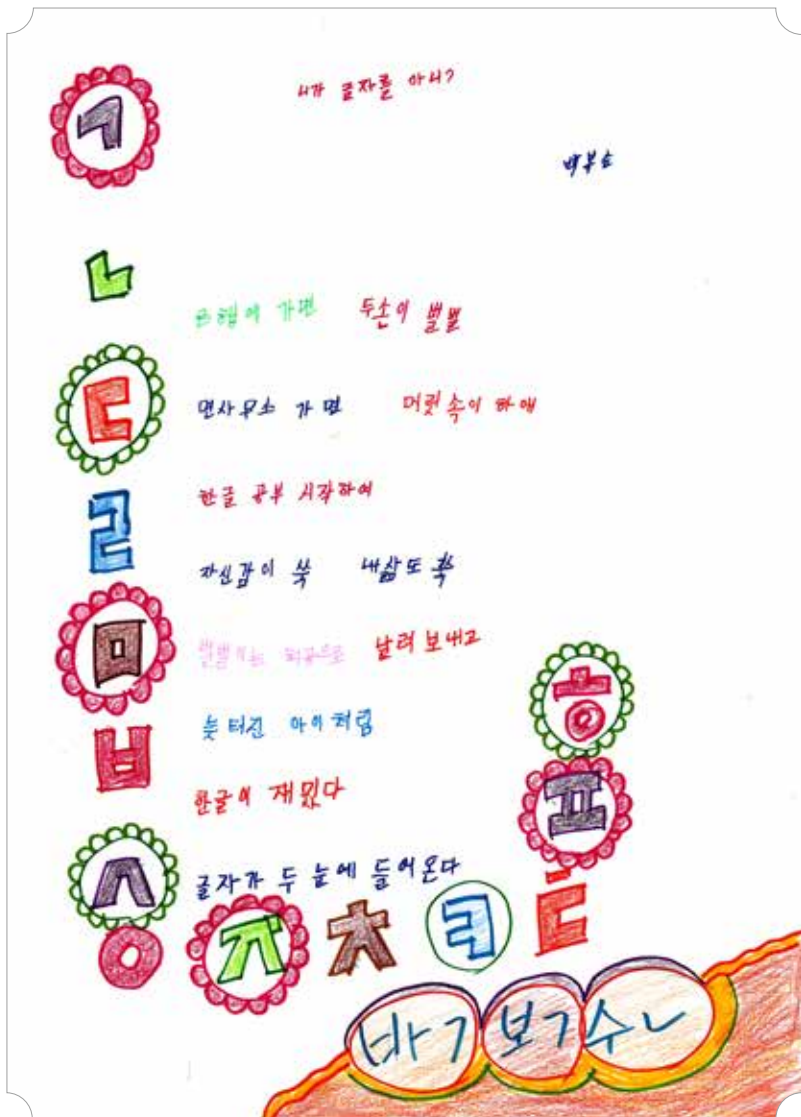 ㄱ
니가 글자를 아니?
ㄴ
은행에 가면 두손이 벌벌
ㄷ
면사무소 가면 머릿속이 하얘
ㄹ
한글 공부 시작하여
자신감이 쑥 내삶도 쑥
ㅁ
허공으로 날려 보내고
ㅎ
ㅂ
늦 터진 아이처럼
한글이 재밌다
ㅍ
ㅅ
글자가 두 눈에 들어온다
ㅇ ㅈ ㅊ ㅋ ㅌ
바ㄱ 보ㄱ 수ㄴ